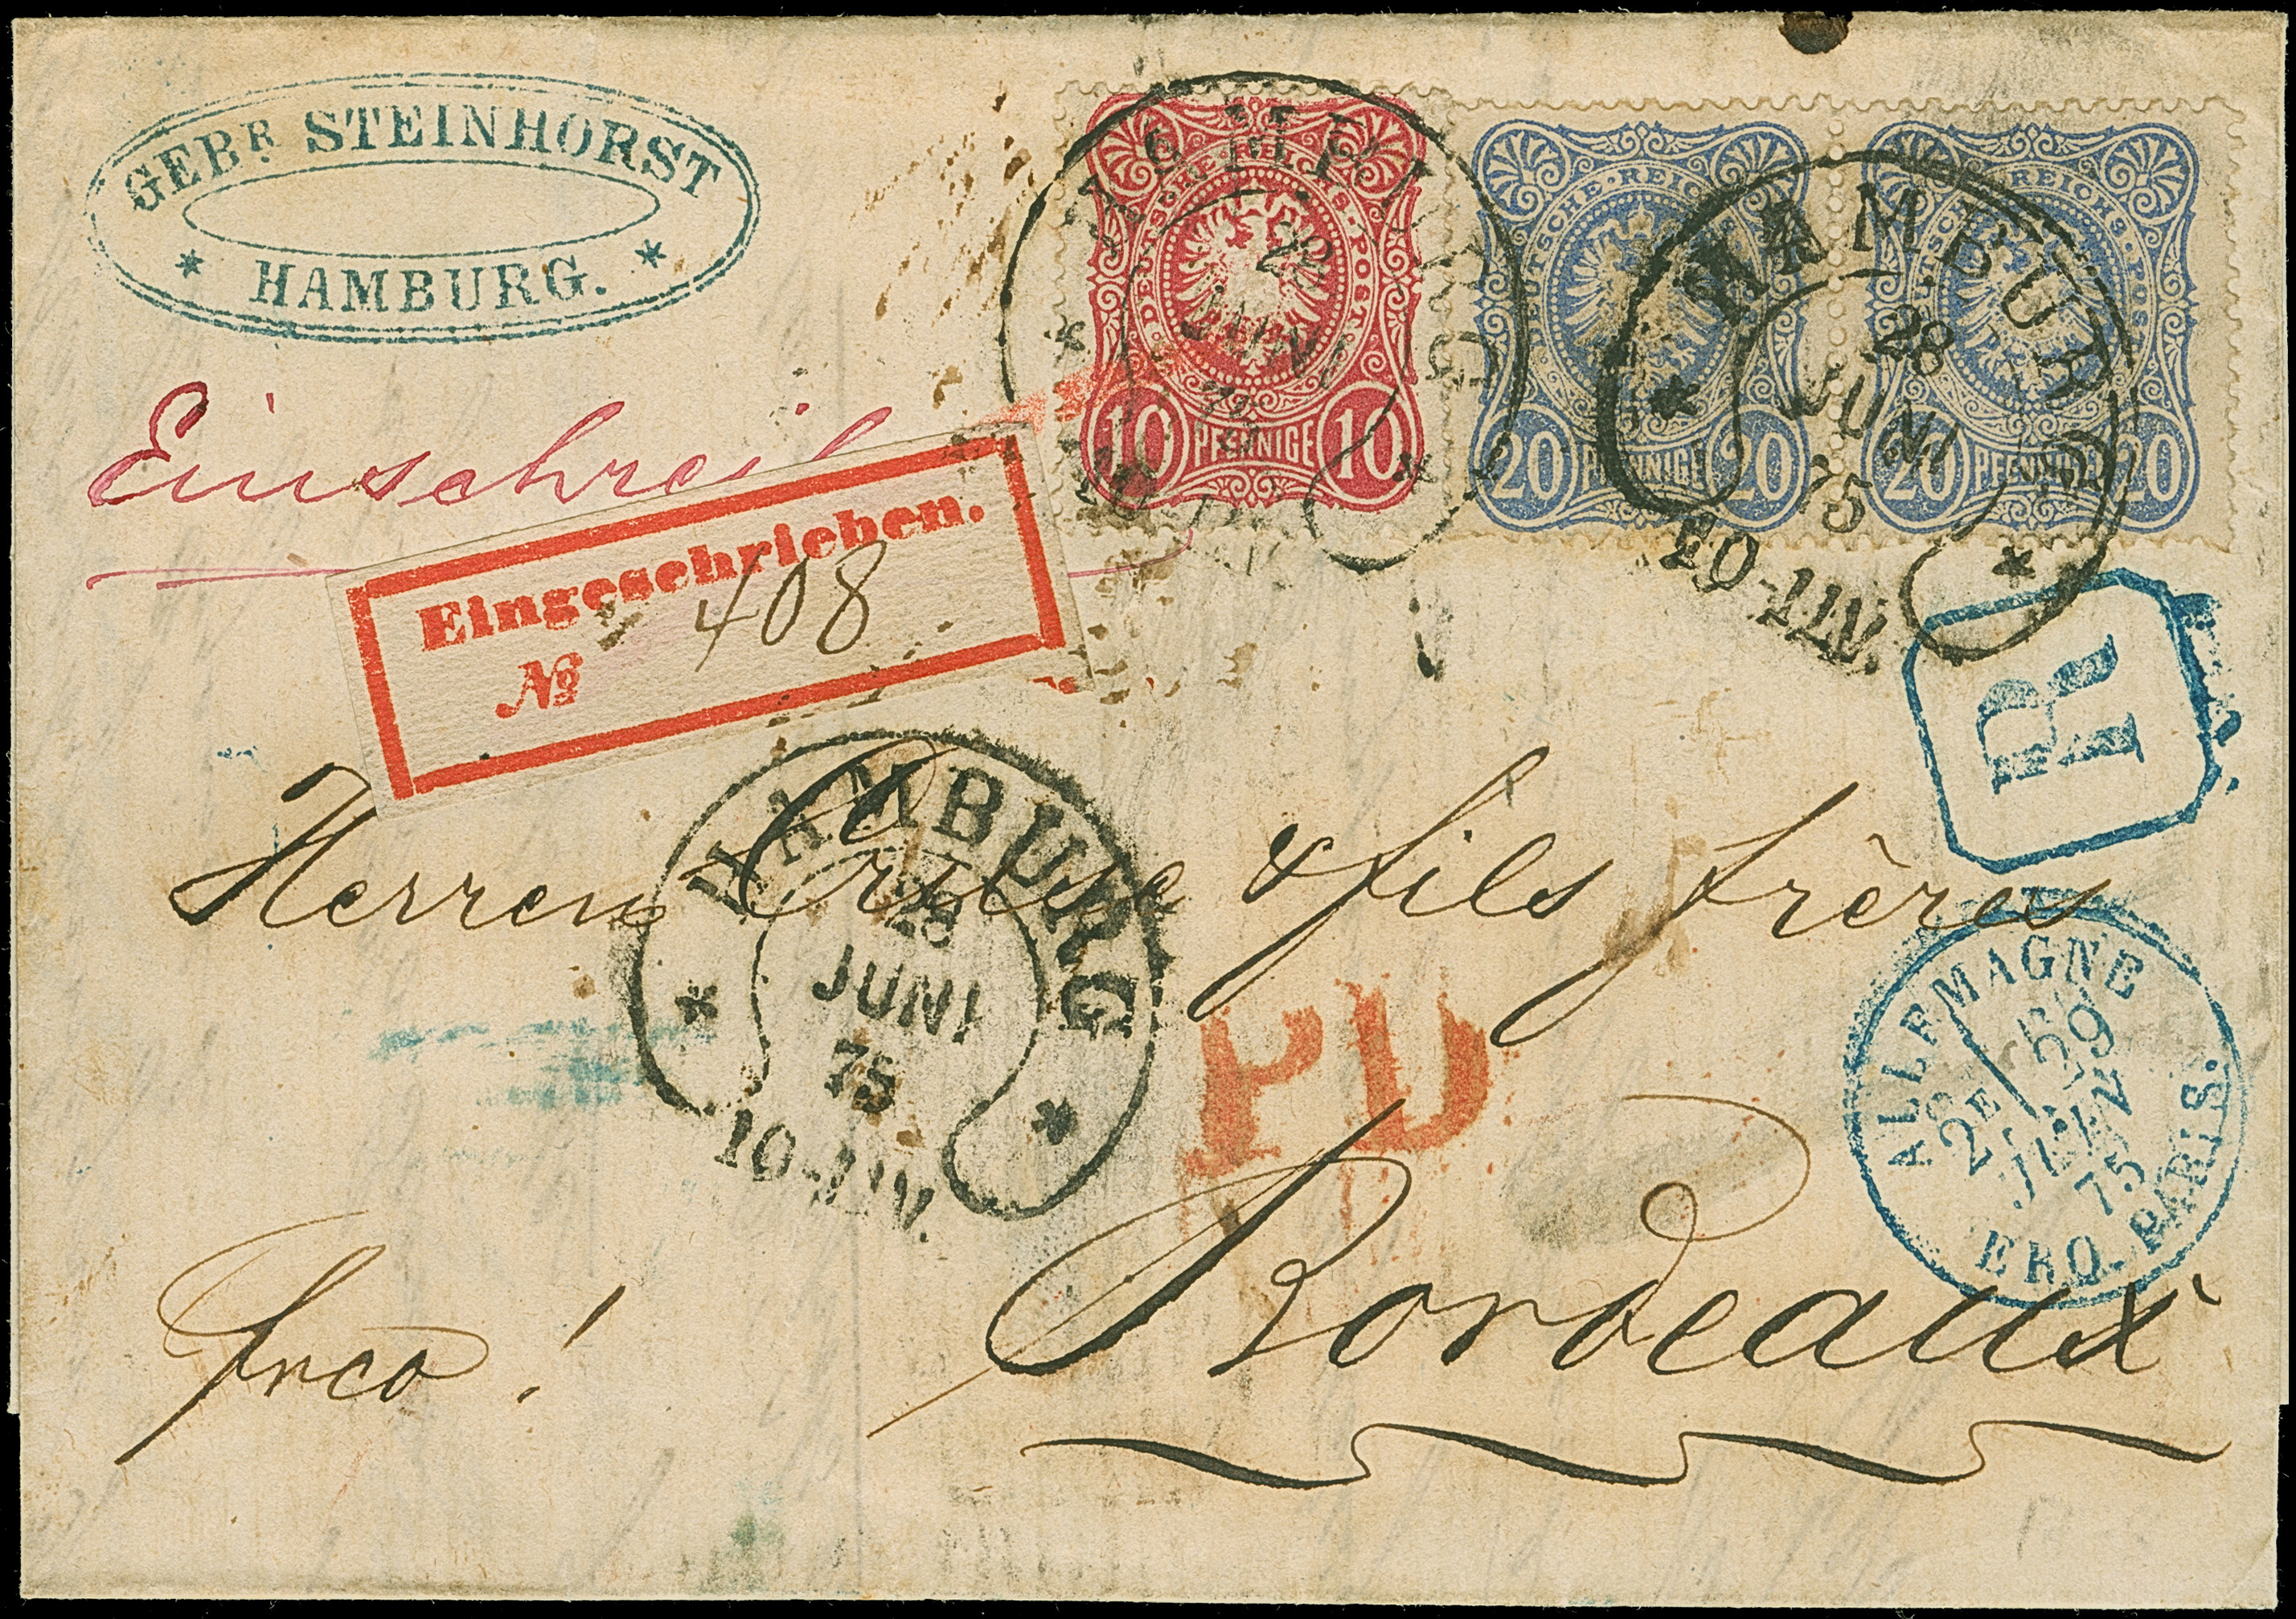 GEBR. STEINHORST
* HAMBURG. *
DEUTSCHE REICHS-POST
10 PFENNIGE 10
DEUTSCHE REICHS-POST
20 PFENNIGE 20
DEUTSCHE REICHS-POST
20 PFENNIGE 20
HAMBURG
28
JUNI
75
HAMBURG
28
JUNI
75
10-11V.
Einschreib
Eingeschrieben.
№ 408
R
HAMBURG
28
JUNI
75
10-11V.
Herren Cruse & fils frères
PD
ALLEMAGNE
2E 29
JUIN
75
ERQ. PARIS.
Bordeaux
frco!